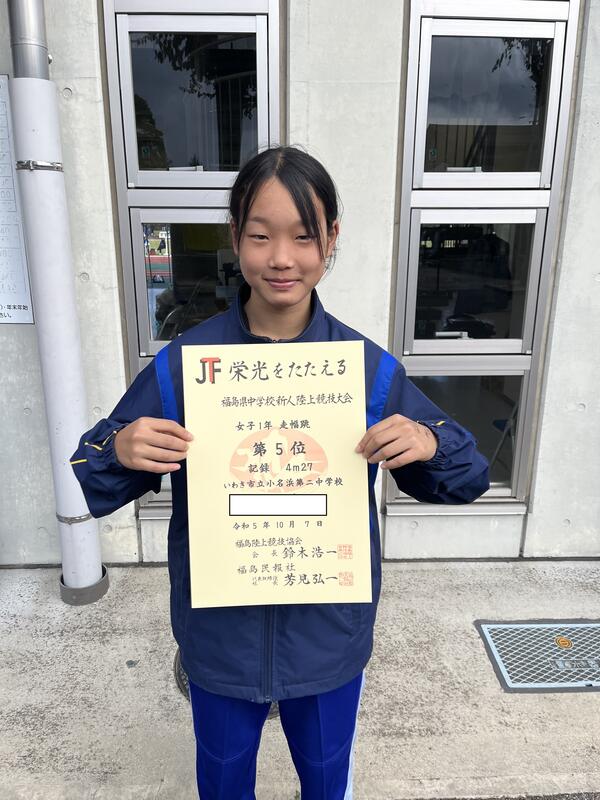 JTF 栄光をたたえる
福島県中学校新人陸上競技大会
女子1年 走幅跳
第5位
記録 4m27
いわき市立小名浜第二中学校
令和5年10月7日
福島陸上競技協会
会長 鈴木浩一
福島民報社
代表取締役社長 芳見弘一
)・年末年始
さい。